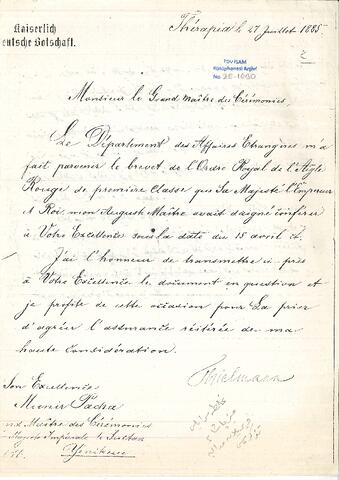 Kaiserlich
eutsche Botschaft.
Thérapia, le 27 Juillet 1885
TDV İSAM
Kütüphanesi Arşivi
No 2E-1090
Monsieur le Grand Maître des Cérémonies,
Le Département des Affaires Etrangères m'a
fait parvenir le brevet de l'Ordre Royal de l'Aigle
Rouge de première classe que Sa Majesté l'Empereur
et Roi, mon Auguste Maître avait daigné conférer
à Votre Excellence sous la date du 15 avril
J'ai l'honneur de transmettre ci près
à Votre Excellence le document en question et
je profite de cette occasion pour La prier
d'agréer l'assurance réitérée de ma
haute considération.
Thielmann
Son Excellence
Munir Pacha
nd Maître des Cérémonies
Majesté Impériale le Sultan
Yenikeuy